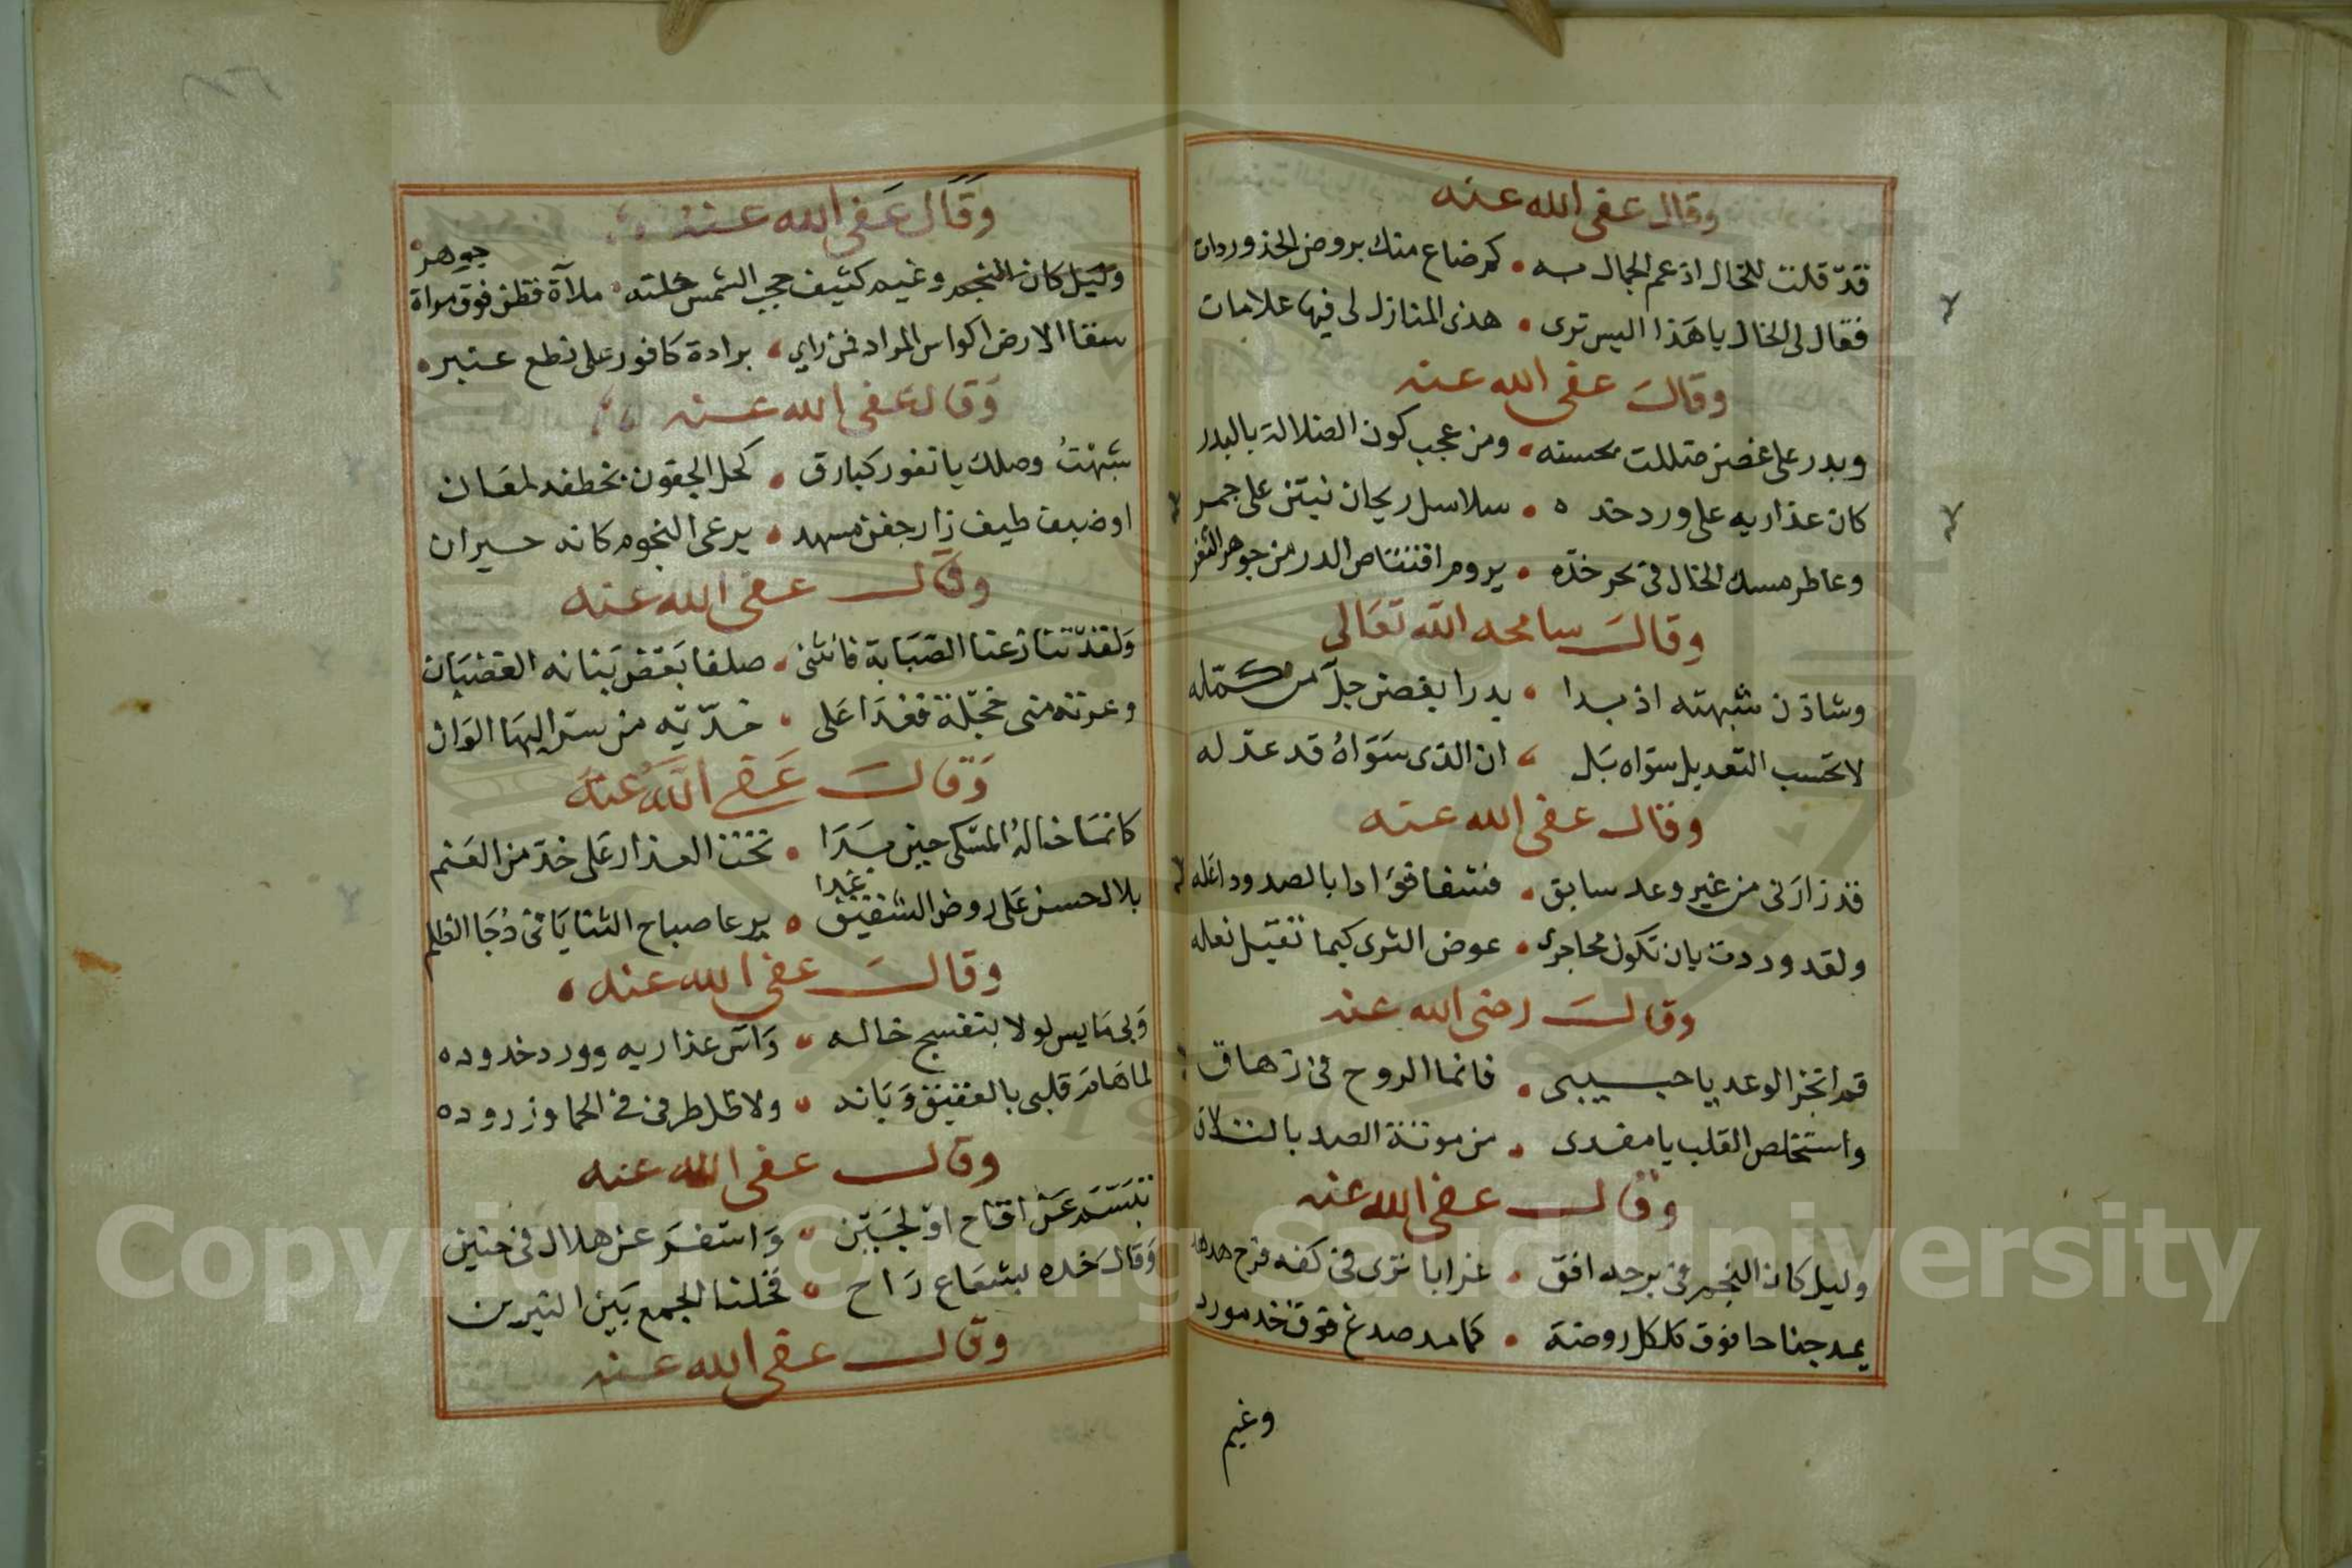 وقال عفى الله عنه
قد قلت للخال اذ عم الجمال به • كم ضاع منك بروض الخد وردات
فقال لى الخال يا هذا اليس ترى • هذى المنازل لى فيها علامات
وقال عفى الله عنه
وبدر على غصن ضللت بحسنه • ومن عجب كون الضلالة بالبدر
كان عذاريه على ورد خده • سلاسل ريحان نبتن على جمر
وعاطر مسك الخال فى بحر خده • يروم اقتناص الدر من جوهر الثغر
وقال سامحه الله تعالى
وشاذن شبهته اذ بدا • بدرا بغصن جل من كمله
لا تحسب التعديل سواه بل • ان الذى سواه قد عدله
وقال عفى الله عنه
قد زارنى من غير وعد سابق • فشفا فؤادا بالصدود اعله
ولقد وددت بان تكون محاجرى • عوض الثرى كيما تقبل نعله
وقال رضى الله عنه
قم انجز الوعد يا حبيبى • فانما الروح فى ازهاق
واستخلص القلب يا مفدى • من موتة الصد بالتلاق
وقال عفى الله عنه
وليل كان النجم فى برجه افق • غرابا ترى فى كفه فرخ هدهد
يمد جناحا فوق كلكل روضة • كما مد صدغ فوق خد مورد
وغيم
وقال عفى الله عنه
وليل كان النجم وغيم كثيف حجب الشمس خلته • ملآة قطن فوق مرآة جوهر
سقا الارض اكواس المراد فمن راي • برادة كافور على نطع عنبر
وقال عفى الله عنه
شبهت وصلك يا نفور كبارق • كحل الجفون بخطفه لمعان
او ضيف طيف زار جفن مسهد • يرعى النجوم كانه حيران
وقال عفى الله عنه
ولقد تنازعنا الصبابة فانثنى • صلفا بعض بنانه الغضبان
وعرته منى خجلة فغدا على • خديه من سر البها الوان
وقال عفى الله عنه
كانما خاله المسكى حين بدا • تحت العذار على خد من العنم
بلال حسن على روض الشقيق غدا • يرعا صباح الثنايا فى دجا الظلم
وقال عفى الله عنه
وبى مايس لولا بنفسج خاله • وآس عذاريه وورد خدوده
لما هام قلبى بالعقيق وبانه • ولا ظل طرفى فى الحما وزروده
وقال عفى الله عنه
تبسم عن اقاح او لجين • واسفر عن هلال فى حنين
وقال خده بشعاع راح • فخلنا الجمع بين النيرين
وقال عفى الله عنه
Copyright © King Saud University